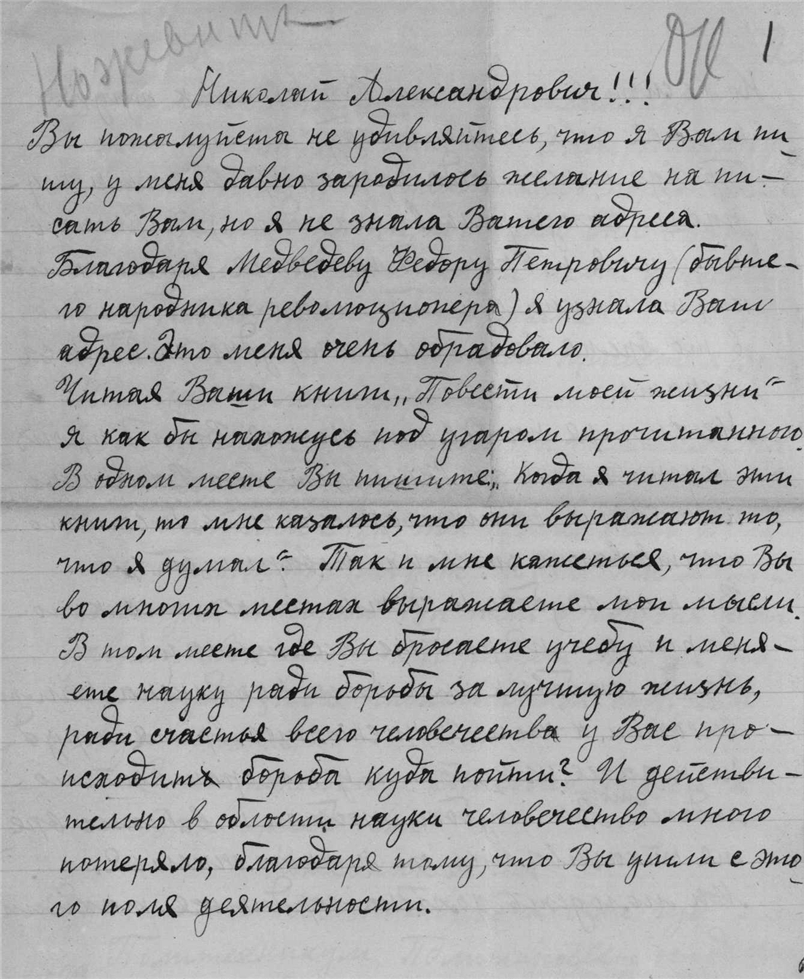 Ножевник
ОК 1
Николай Александрович!!!
Вы пожалуйста не удивляйтесь, что я Вам пи
шу, у меня давно зародилось желание на пи-
сать Вам, но я не знала Вашего адреса.
Благодаря Медведеву Федору Петровичу (бывше-
го народника революционера) я узнала Ваш
адрес. Это меня очень обрадовало.
Читая Ваши книги „Повести моей жизни“
я как бы нахожусь под угаром прочитанного.
В одном месте Вы пишите: „Когда я читал эти
книги, то мне казалось, что они выражают то,
что я думал“. Так и мне кажеться, что Вы
во многих местах выражаете мои мысли.
В том месте где Вы бросаете учебу и меня-
ете науку ради борьбы за лучшую жизнь,
ради счастья всего человечества у Вас про-
исходить борьба куда пойти? И действи-
тельно в области науки человечество много
потеряло, благодаря тому, что Вы ушли с это
го поля деятельности.